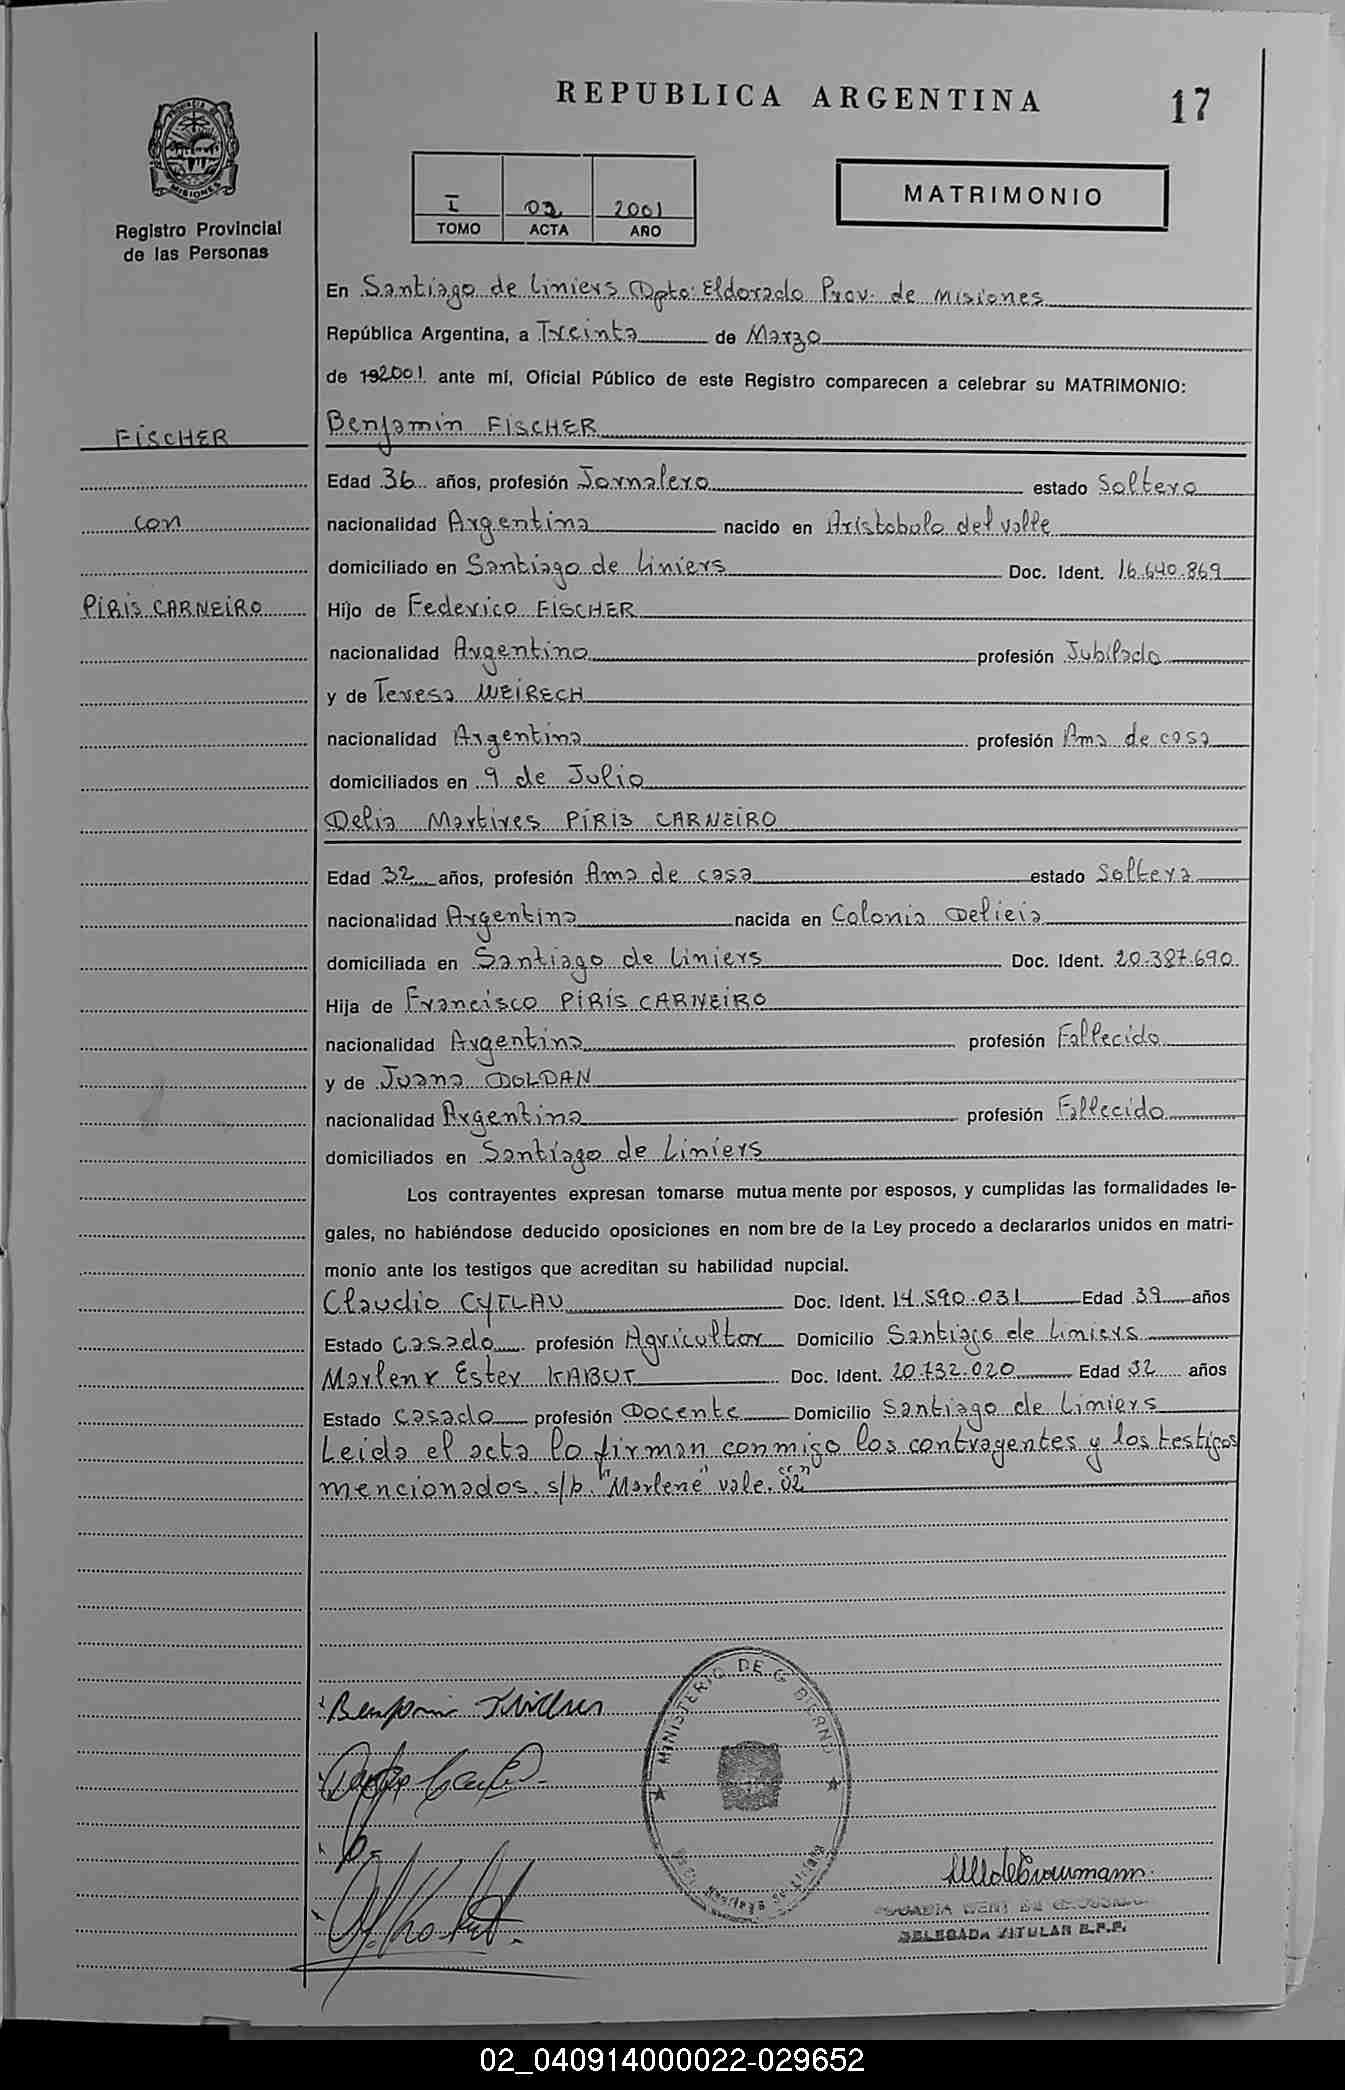 REPUBLICA ARGENTINA
17
PROVINCIA DE
MISIONES
Registro Provincial
de las Personas
I 02 2001
TOMO ACTA AÑO
MATRIMONIO
En Santiago de Liniers Dpto: Eldorado Prov. de Misiones
República Argentina, a Treinta de Marzo
de 192001 ante mí, Oficial Público de este Registro comparecen a celebrar su MATRIMONIO:
FISCHER
Benjamin FISCHER
Edad 36 años, profesión Jornalero estado Soltero
con
nacionalidad Argentina nacido en Aristobulo del Valle
domiciliado en Santiago de Liniers Doc. Ident. 16.640.869
PIRIS CARNEIRO
Hijo de Federico FISCHER
nacionalidad Argentino profesión Jubilado
y de Teresa WEIRECH
nacionalidad Argentina profesión Ama de casa
domiciliados en 9 de Julio
Delia Martires PIRIS CARNEIRO
Edad 32 años, profesión Ama de casa estado Soltera
nacionalidad Argentina nacida en Colonia Delicia
domiciliada en Santiago de Liniers Doc. Ident. 20.387.690
Hija de Francisco PIRIS CARNEIRO
nacionalidad Argentina profesión Fallecido
y de Juana DOLDAN
nacionalidad Argentina profesión Fallecido
domiciliados en Santiago de Liniers
Los contrayentes expresan tomarse mutua mente por esposos, y cumplidas las formalidades le-
gales, no habiéndose deducido oposiciones en nom bre de la Ley procedo a declararlos unidos en matri-
monio ante los testigos que acreditan su habilidad nupcial.
Claudio CYTLAU Doc. Ident. 14.590.031 Edad 39 años
Estado Casado profesión Agricultor Domicilio Santiago de Liniers
Marlene Ester KABUT Doc. Ident. 20.732.020 Edad 32 años
Estado Casado profesión Docente Domicilio Santiago de Liniers
Leida el acta lo firman conmigo los contragentes y los testigos
mencionados. s/b. "Marlene" vale. "02"
Benjamin
MINISTERIO DE GOBIERNO
DELEGADA TITULAR R.P.P.
02_040914000022-029652